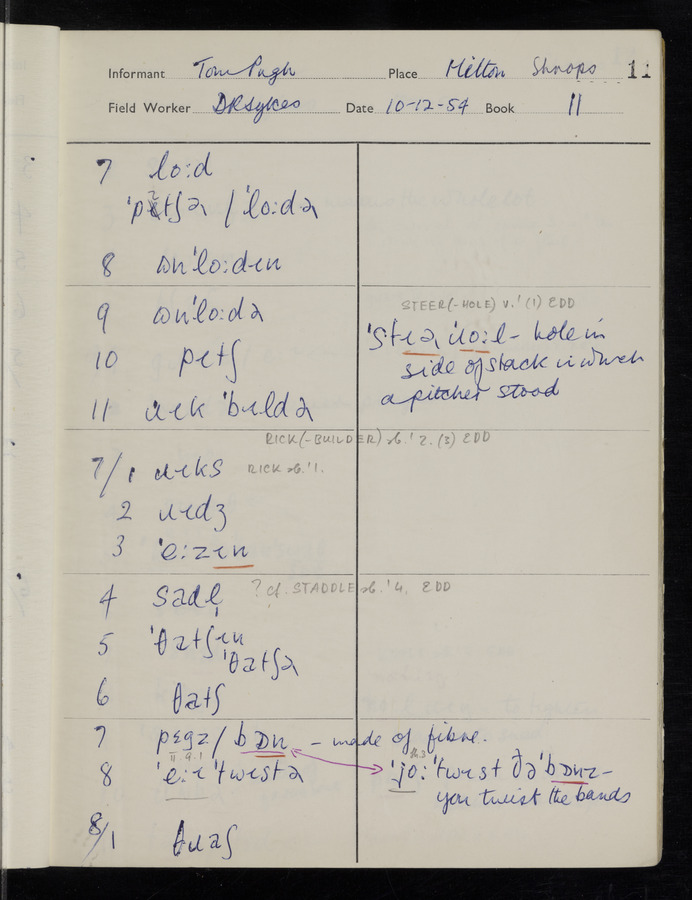 Informant Tom Pugh Place Hilton Shrops 11
Field Worker DRSykes Date 10-12-54 Book 11
7 lo:d
ˈpɪtʃə / ˈlo:də
8 ɒnˈlo:dɪn
9 ɒnˈlo:də
STEER(-HOLE) v.¹ (1) EDD
ˈstɪə ɹo:l - hole in
side of stack in which
a pitcher stood
10 pɪtʃ
11 ɹɪk ˈbɪldə
RICK(-BUILDER) sb.¹ 2. (3) EDD
7/1 ɹɪks RICK sb.¹ 1.
2 ɹɪdʒ
3 ˈe:zɪn
4 sadl̩ ? cf. STADDLE sb.¹ 4. EDD
5 ˈθatʃɪn
ˈθatʃə
6 θatʃ
7 pɛgz / bɒn - made of fibre.
8 ˈe:ɪ ˈtwɪstə
ˈjo: ˈtwɪst ðə ˈbɒnz -
you twist the bands
8/1 θɹaʃ